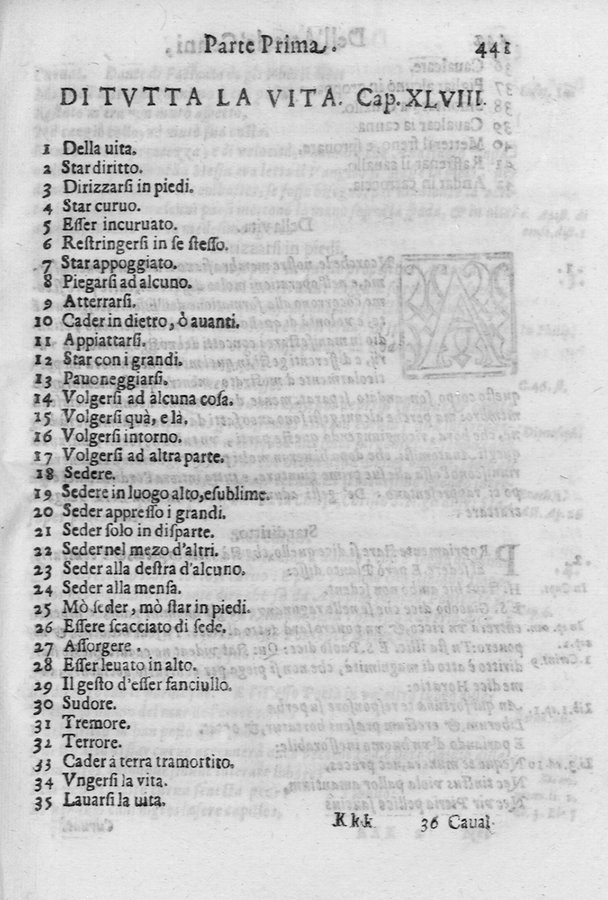 Parte Prima. 441
DI TVTTA LA VITA. Cap. XLVIII.
1 Della uita.
2 Star diritto.
3 Dirizzarsi in piedi.
4 Star curuo.
5 Esser incuruato.
6 Restringersi in se stesso.
7 Star appoggiato.
8 Piegarsi ad alcuno.
9 Atterrarsi.
10 Cader in dietro, ò auanti.
11 Appiattarsi.
12 Star con i grandi.
13 Pauoneggiarsi.
14 Volgersi ad alcuna cosa.
15 Volgersi quà, e là,
16 Volgersi intorno.
17 Volgersi ad altra parte.
18 Sedere.
19 Sedere in luogo alto, e sublime.
20 Seder appresso i grandi.
21 Seder solo in disparte.
22 Seder nel mezo d'altri.
23 Seder alla destra d'alcuno.
24 Seder alla mensa.
25 Mò seder, mò star in piedi.
26 Essere scacciato di sede.
27 Assorgere.
28 Esser leuato in alto.
29 Il gesto d'esser fanciullo.
30 Sudore.
31 Tremore.
32 Terrore.
33 Cader à terra tramortito.
34 Vngersi la vita.
35 Lauarsi la uita.
Kkk 36 Caual-